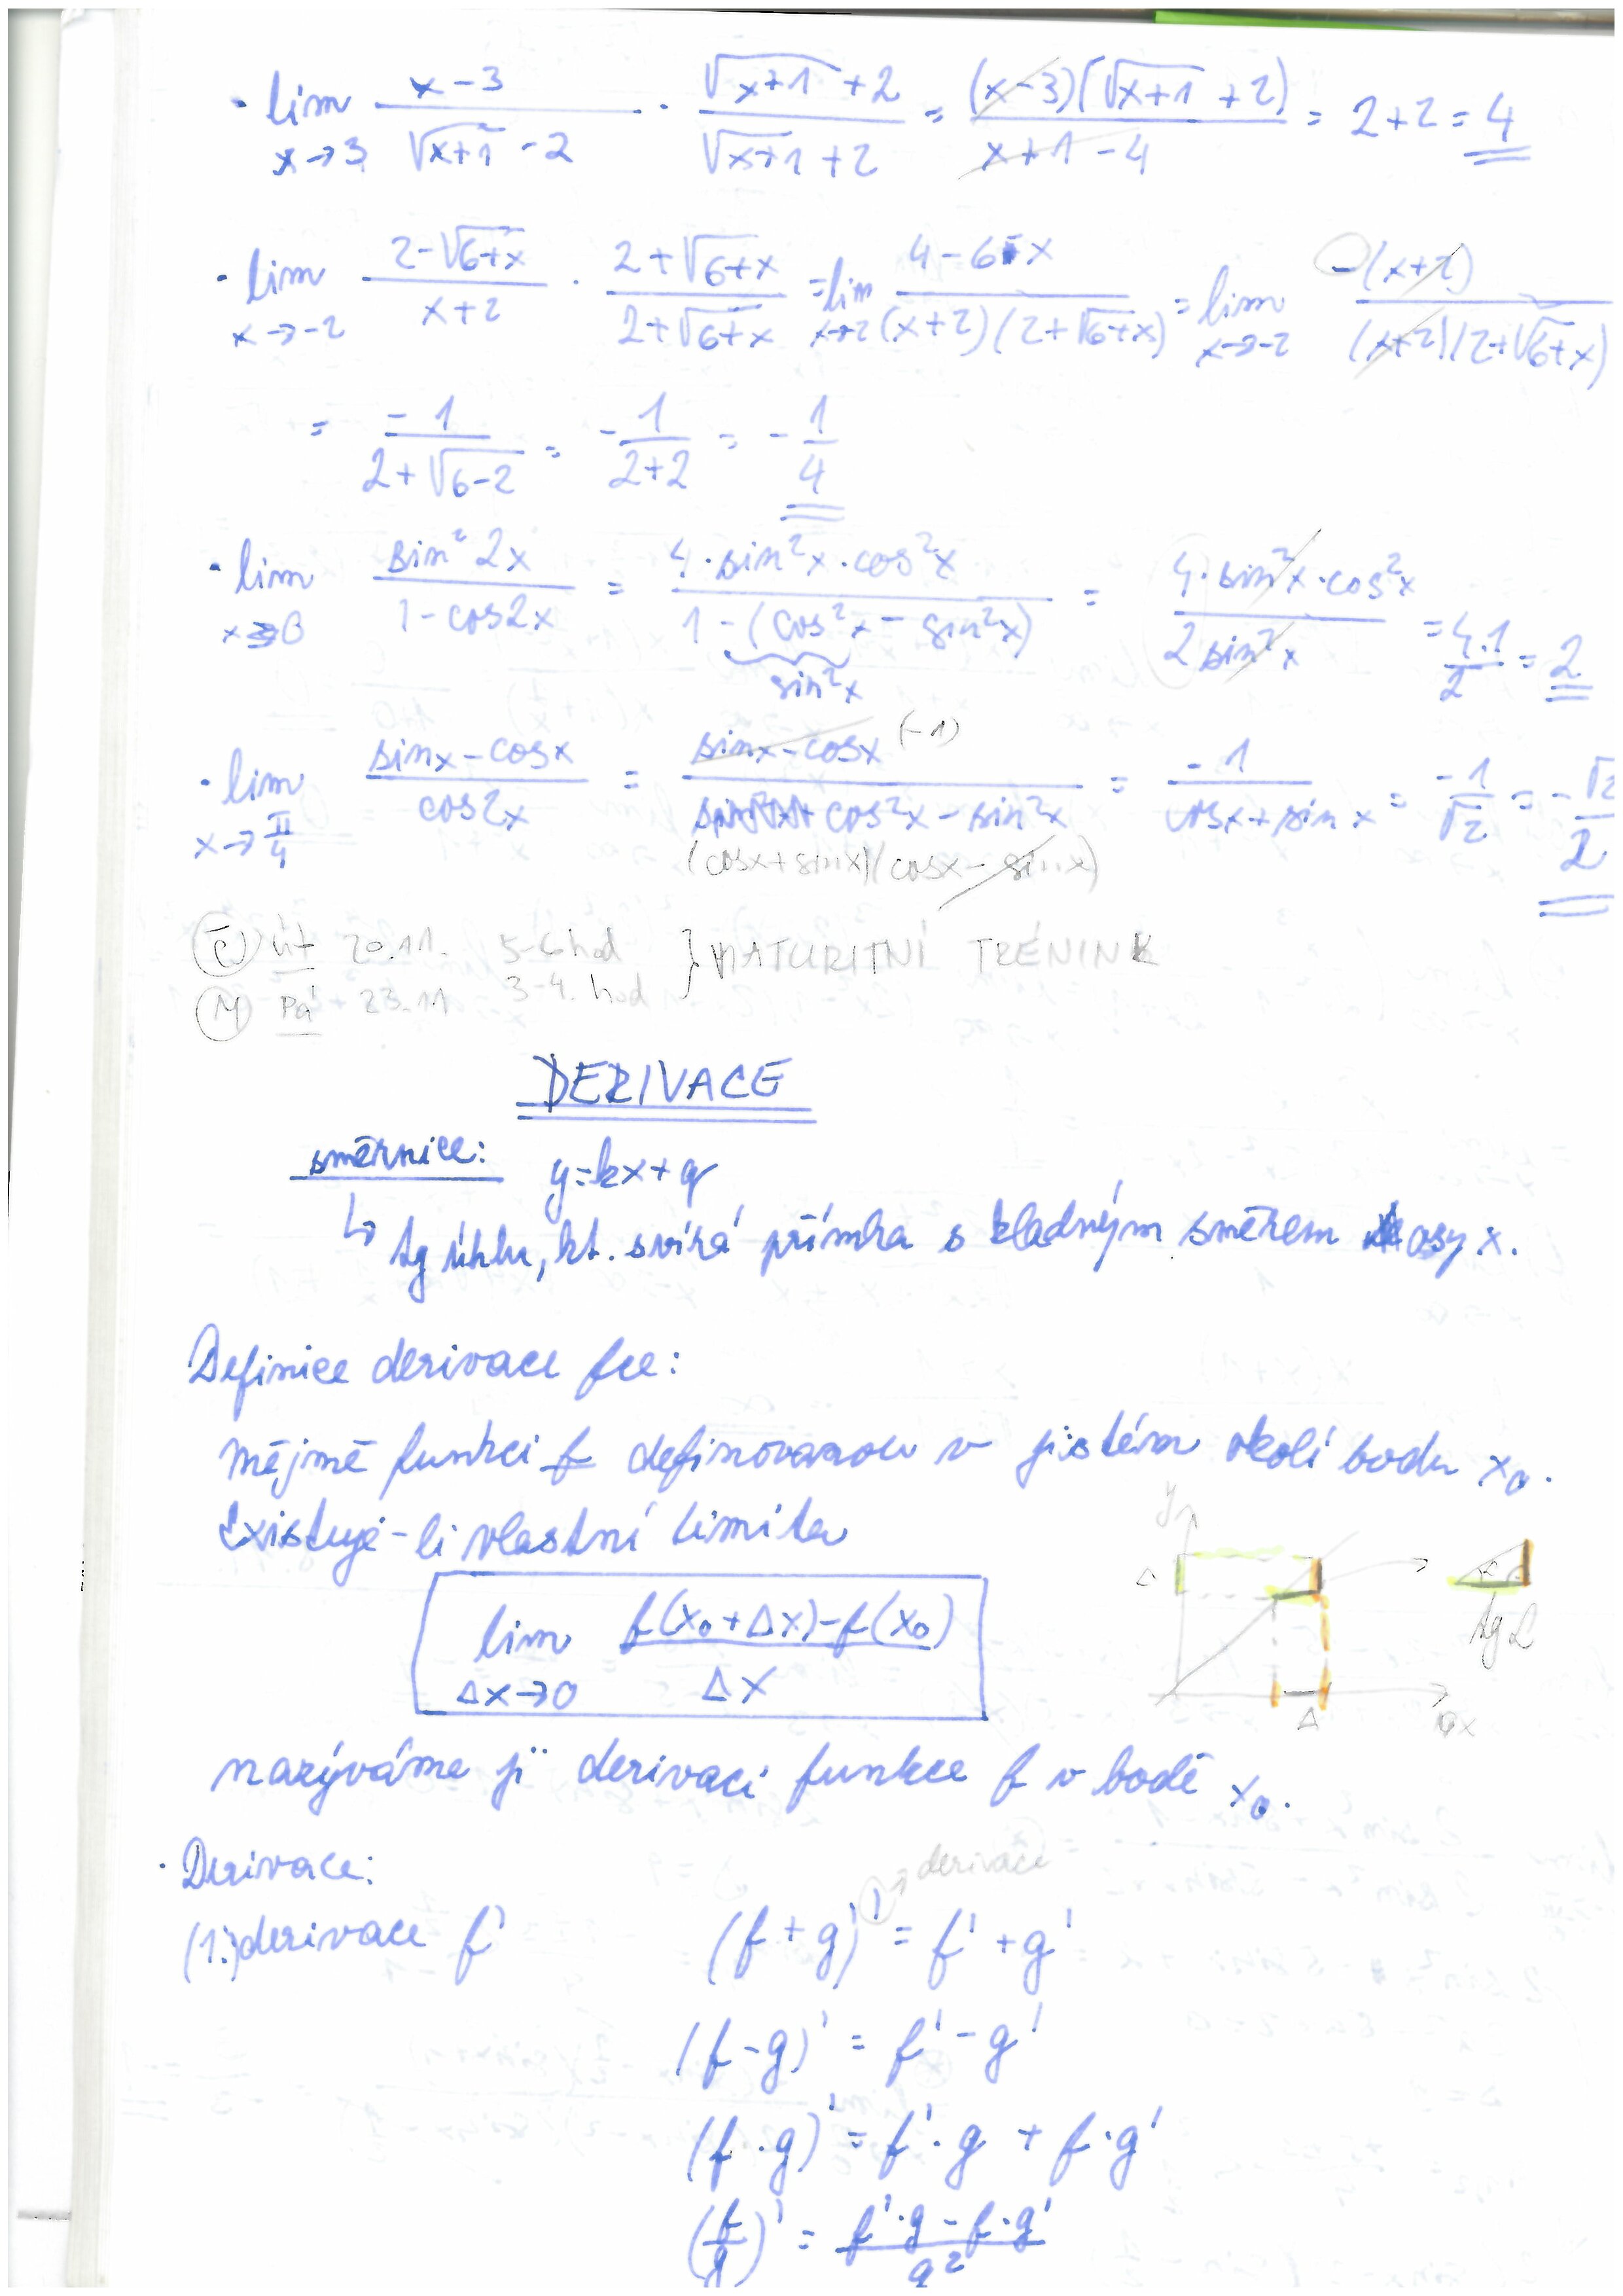 · lim x→3 (x-3)/(√(x+1) -2) · (√(x+1) +2)/(√(x+1) +2) = (x-3)(√(x+1) +2)/(x+1-4) = 2+2 = 4
· lim x→-2 (2-√(6+x))/(x+2) · (2+√(6+x))/(2+√(6+x)) = lim x→-2 (4-6-x)/((x+2)(2+√(6+x))) = lim x→-2 -(x+2)/((x+2)(2+√(6+x)))
= -1/(2+√(6-2)) = -1/(2+2) = -1/4
· lim x→0 sin²2x/(1-cos2x) = 4·sin²x·cos²x/(1-(cos²x-sin²x)) = 4·sin²x·cos²x/(2sin²x) = 4·1/2 = 2
sin²x
· lim x→π/4 (sinx-cosx)/cos2x = sinx-cosx (-1)/(cos²x-sin²x) = -1/(cosx+sinx) = -1/√2 = -√2/2
(cosx+sinx)(cosx-sinx)
Č Út 20.11. 5-6 hod } MATURITNÍ TRÉNINK
M Pá 23.11 3-4. hod
DERIVACE
směrnice: y=kx+q
↳ tg úhlu, kt. svírá přímka s kladným směrem osy x.
Definice derivace fce:
Mějmě funkci f definovanou v jistém okolí bodu x₀.
Existuje-li vlastní limita
lim Δx→0 (f(x₀+Δx)-f(x₀))/Δx
y
Δ
Δ
x
α
tg α
nazýváme ji derivací funkce f v bodě x₀.
· Derivace:
→ derivace
(1.)derivace f' (f+g)' = f' + g'
(f-g)' = f' - g'
(f·g)' = f'·g + f·g'
(f/g)' = (f'·g - f·g')/g²